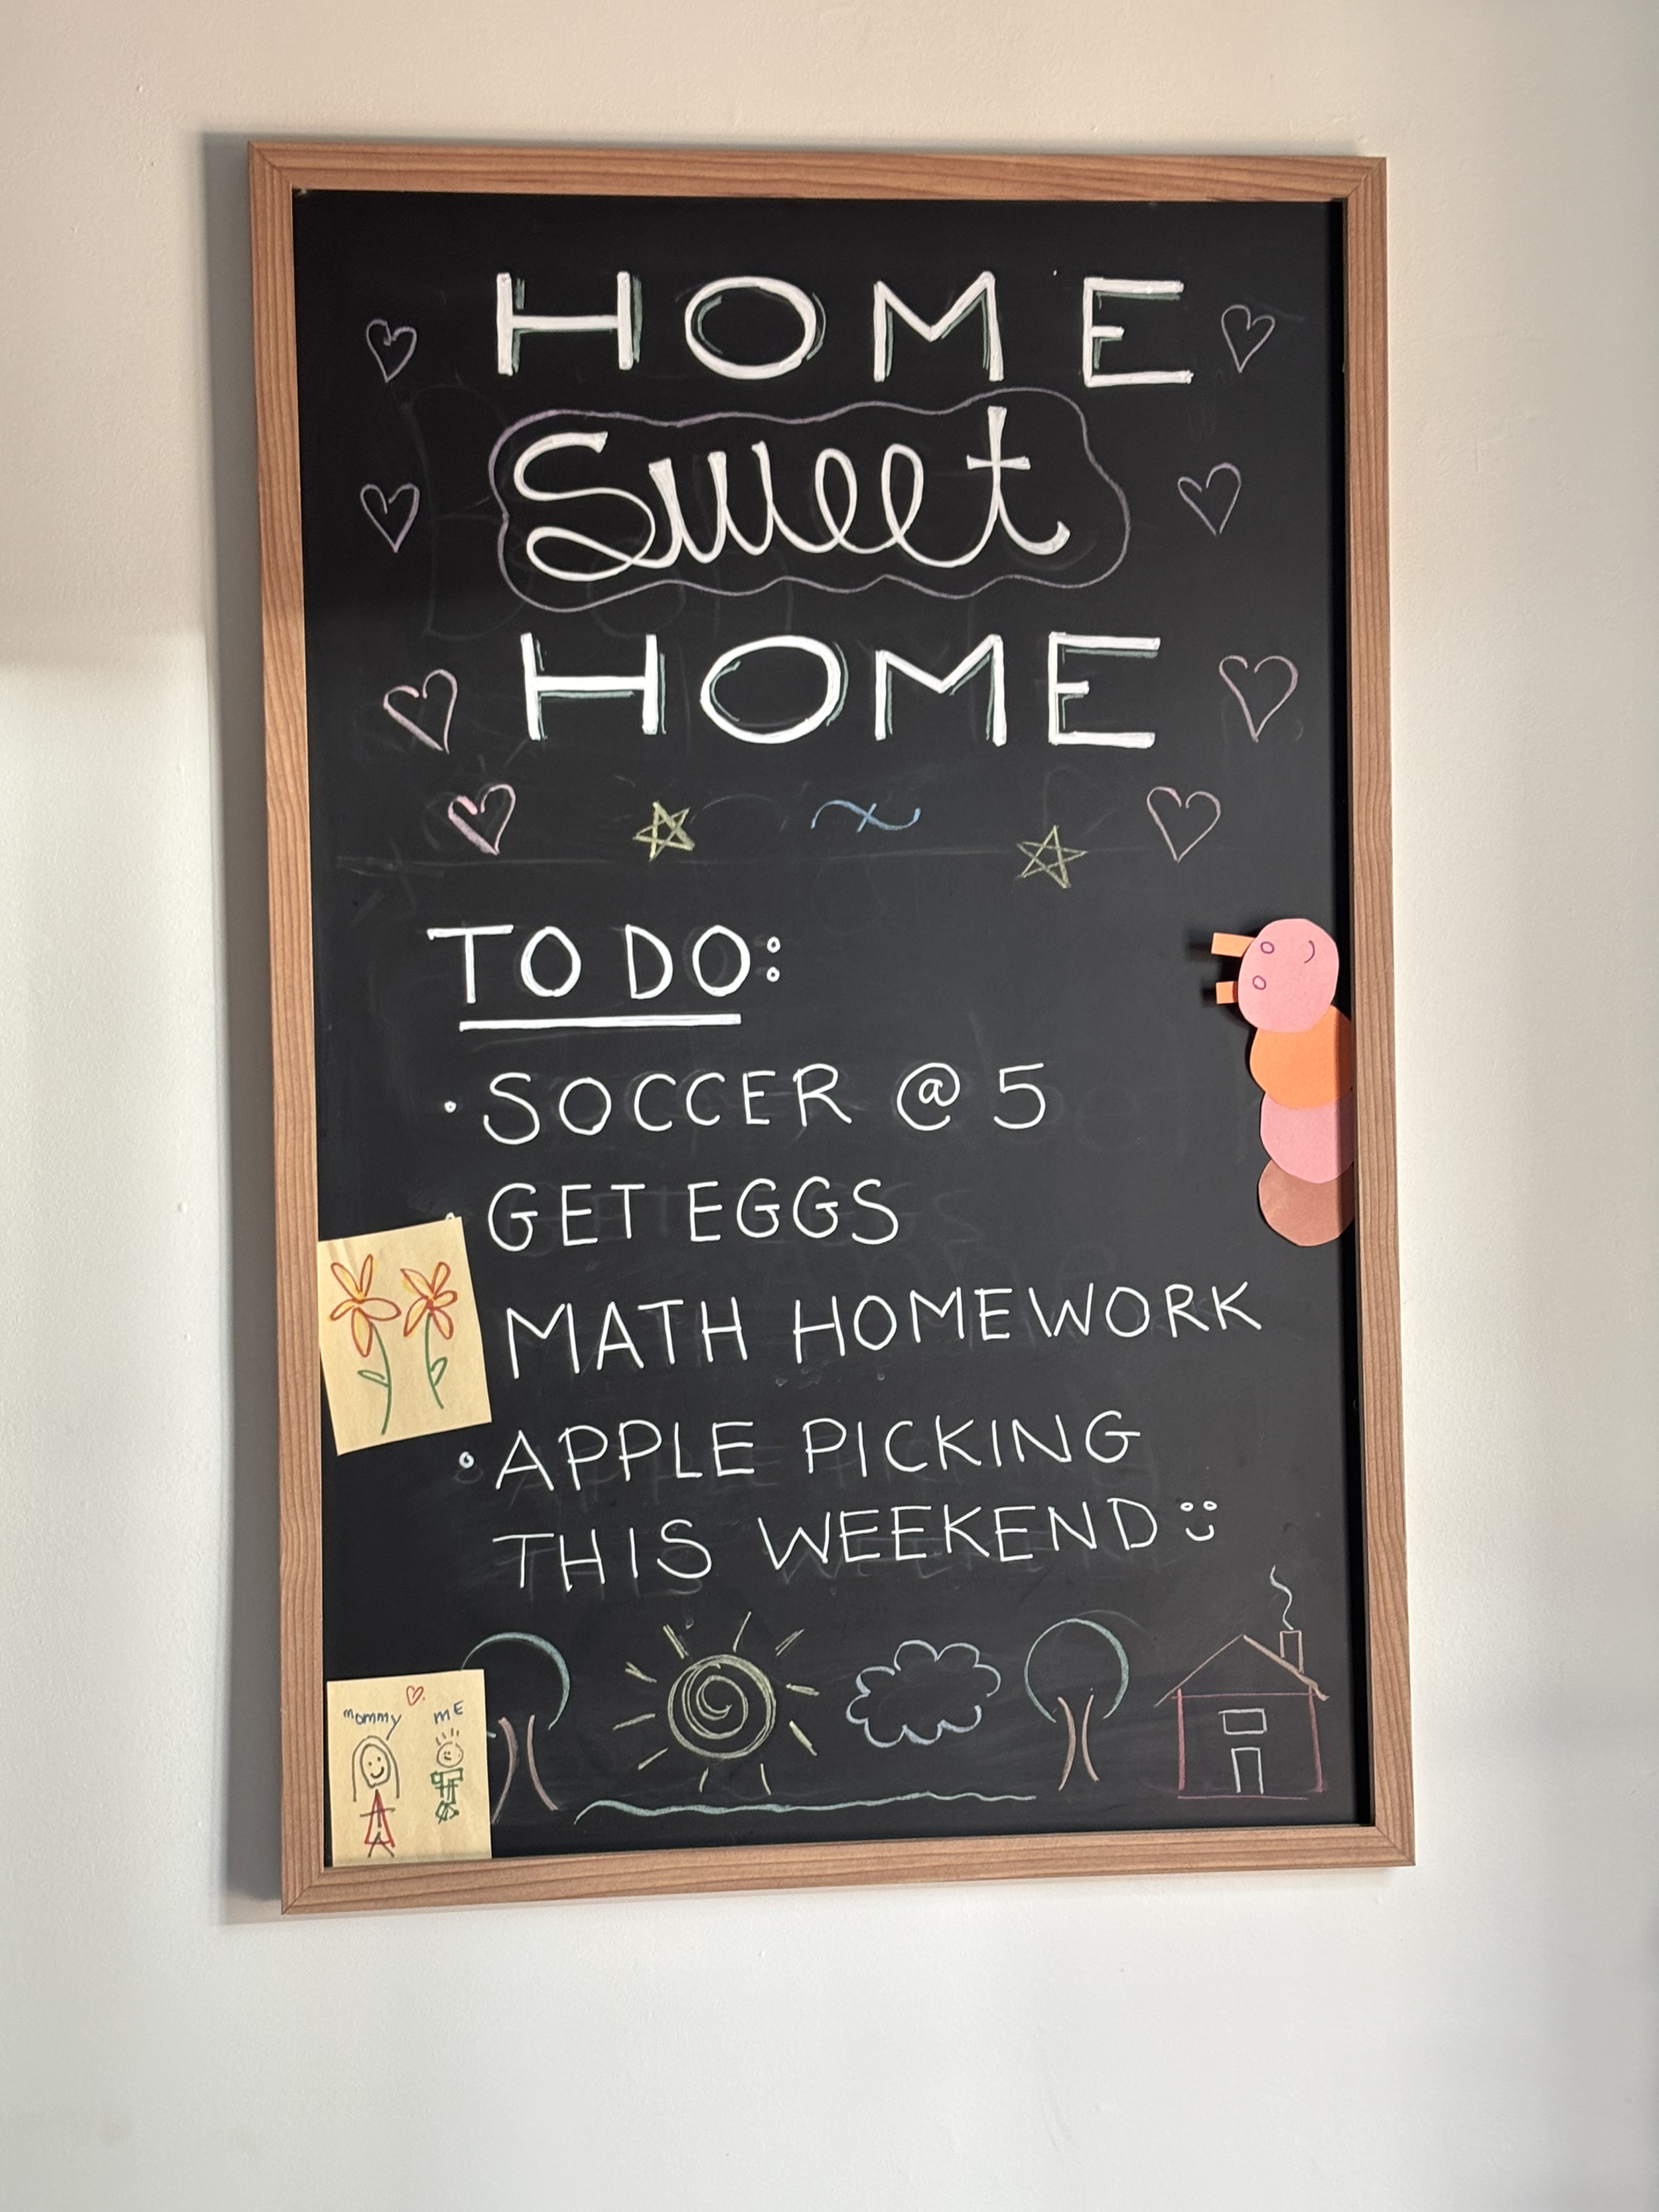 HOME
Sweet
HOME
TO DO:
• SOCCER @ 5
• GET EGGS
MATH HOMEWORK
• APPLE PICKING
THIS WEEKEND
mommy ME